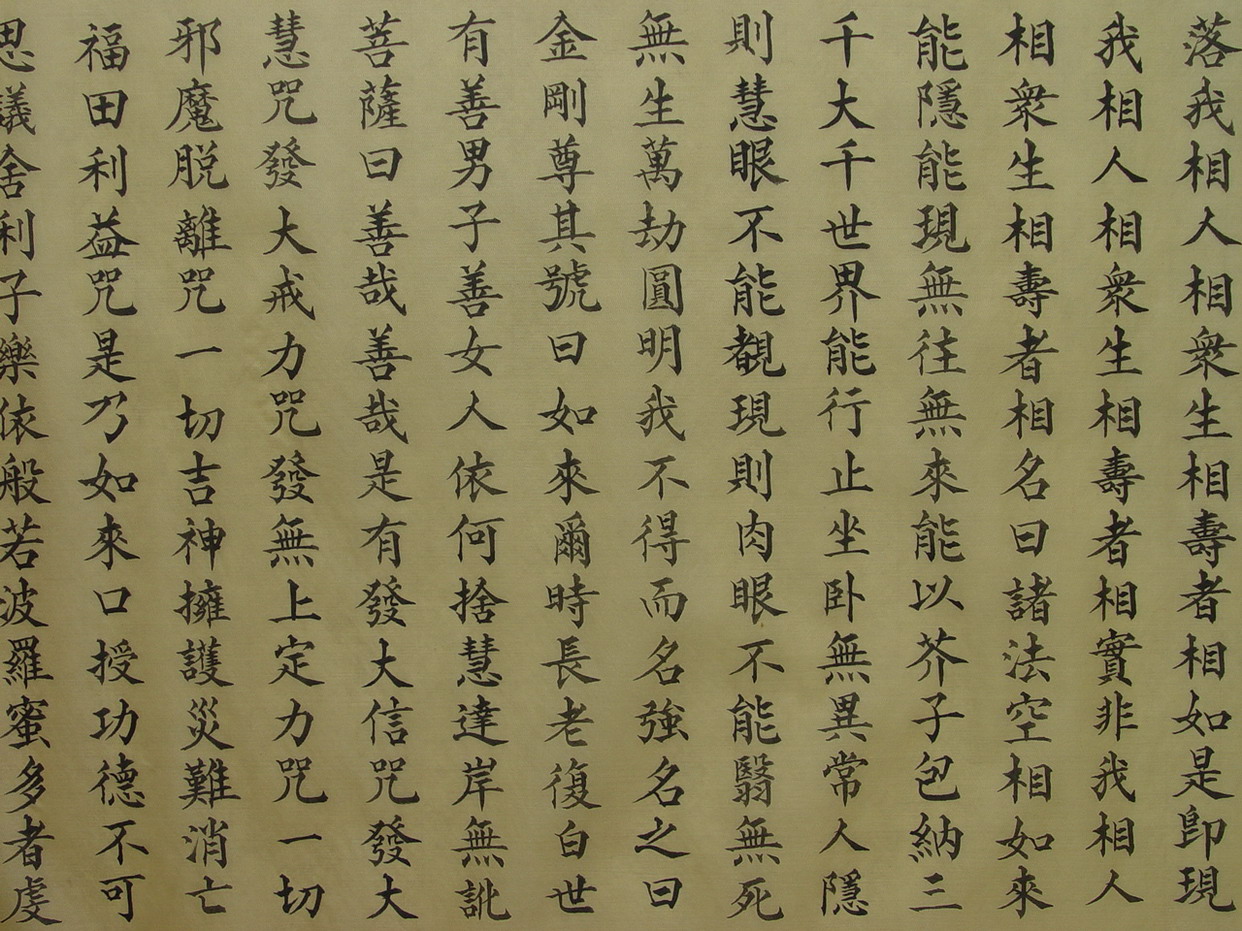 落我相人相衆生相壽者相如是即現
我相人相衆生相壽者相實非我相人
相衆生相壽者相名曰諸法空相如來
能隱能現無往無來能以芥子包納三
千大千世界能行止坐卧無異常人隱
則慧眼不能覩現則肉眼不能翳無死
無生萬劫圓明我不得而名強名之曰
金剛尊其號曰如來爾時長老復白世
有善男子善女人依何捨慧達岸無訛
菩薩曰善哉善哉是有發大信咒發大
慧咒發大戒力咒發無上定力咒一切
邪魔脱離咒一切吉神擁護災難消亡
福田利益咒是乃如來口授功德不可
思議舍利子樂依般若波羅蜜多者虔